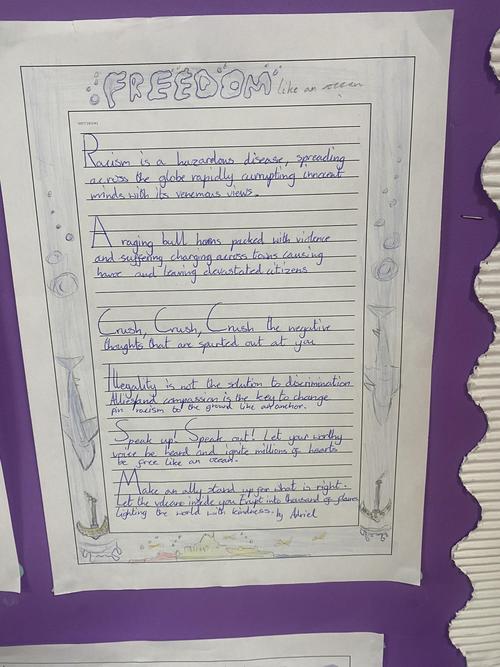 FREEDOM like an ocean
Racism is a hazardous disease, spreading
across the globe rapidly currupting innocent
minds with its venemous views.
A raging bull horns packed with violence
and suffering charging across towns causing
havoc and leaving devastated citizens
Crush, Crush, Crush the negative
thoughts that are spurted out at you
Illegality is not the solution to discrimination
Allies and compassion is the key to change
pin racism to the ground like an anchor.
Speak up! Speak out! Let your worthy
voice be heard and ignite millions of hearts
be free like an ocean.
Make an ally stand up for what is right.
Let the volcano inside you erupt into thousand of flames
lighting the world with kindness. by Adriel